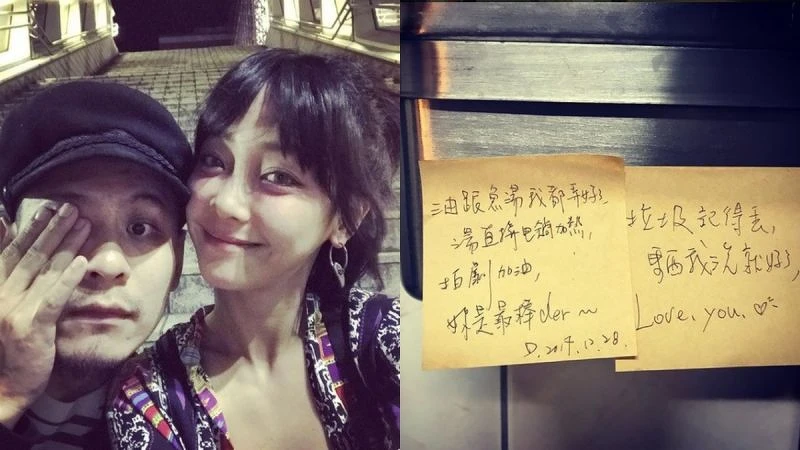 油跟魚湯我都弄好了
湯直接電鍋加熱,
拍劇加油,
妳是最棒der~
D.2014.12.28.
垃圾記得丟,
東西我洗就好了,
Love. you. ♡